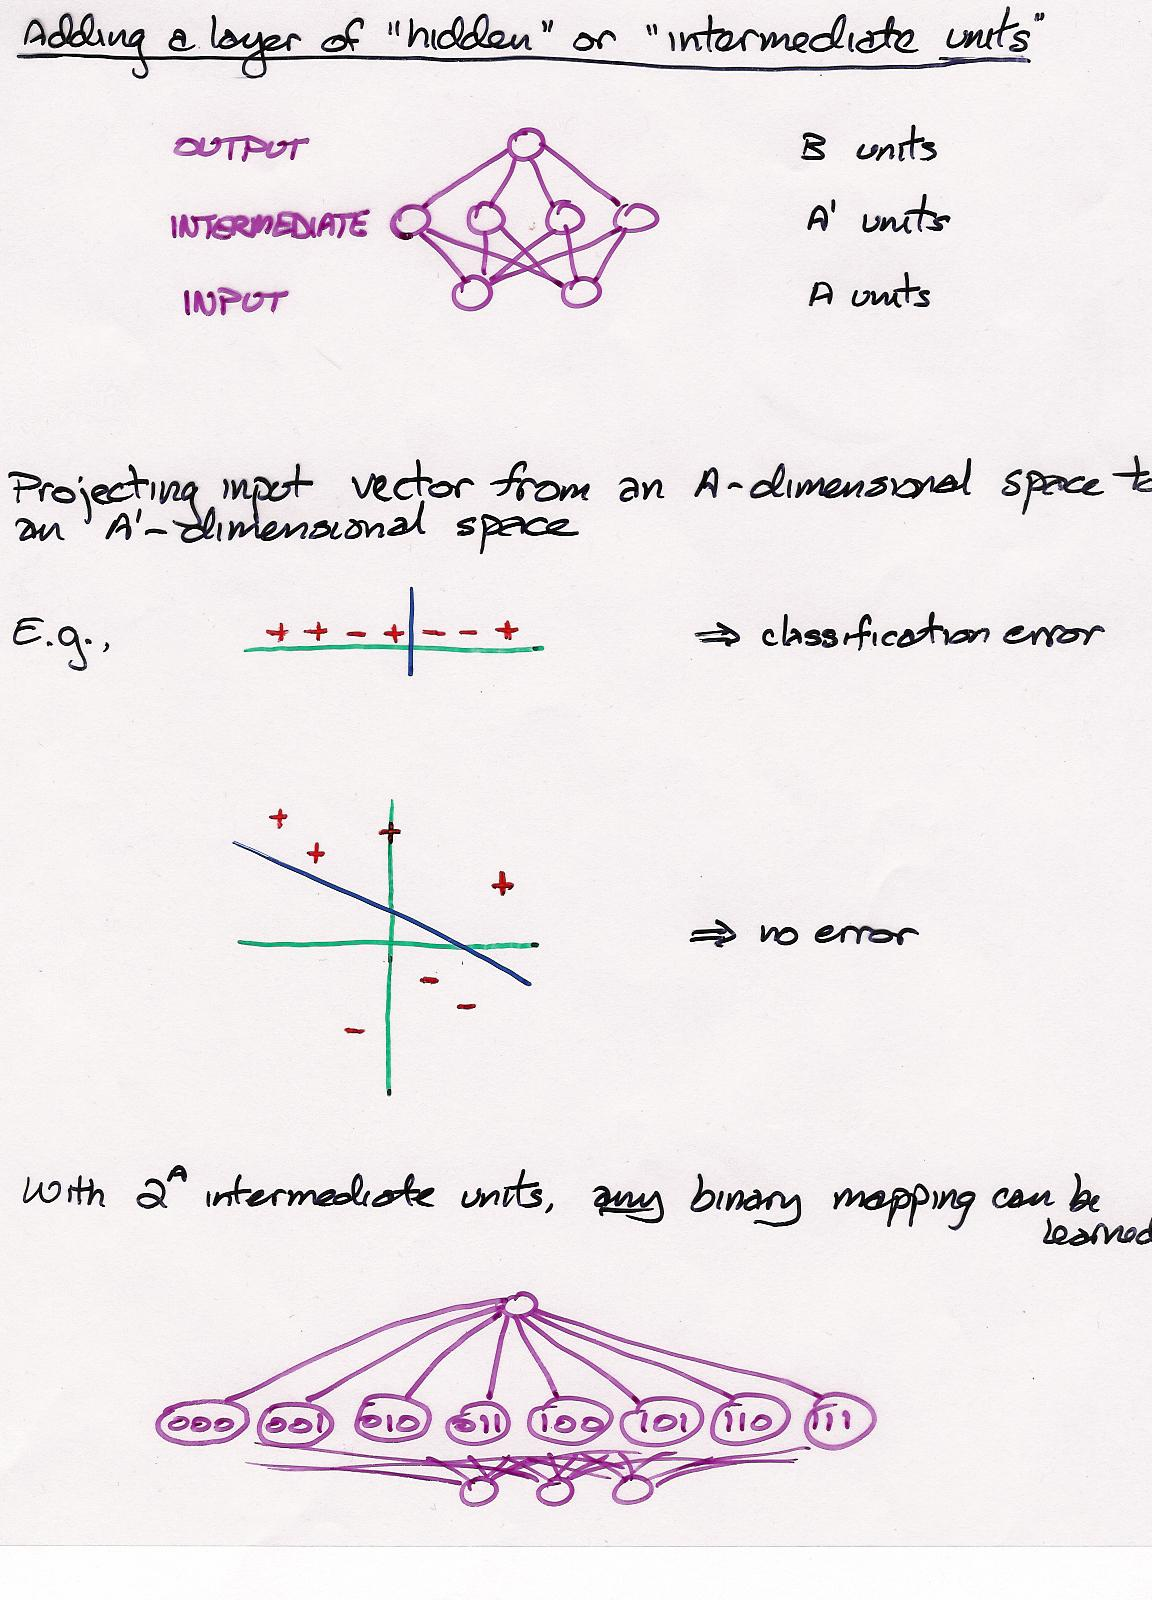 Adding a layer of "hidden" or "intermediate units"
OUTPUT B units
INTERMEDIATE A' units
INPUT A units
Projecting input vector from an A-dimensional space to
an A'-dimensional space
E.g., + + - + - - + ⇒ classification error
+
+
+
+
⇒ no error
-
-
-
With 2^A intermediate units, any binary mapping can be
learned
000 001 010 011 100 101 110 111